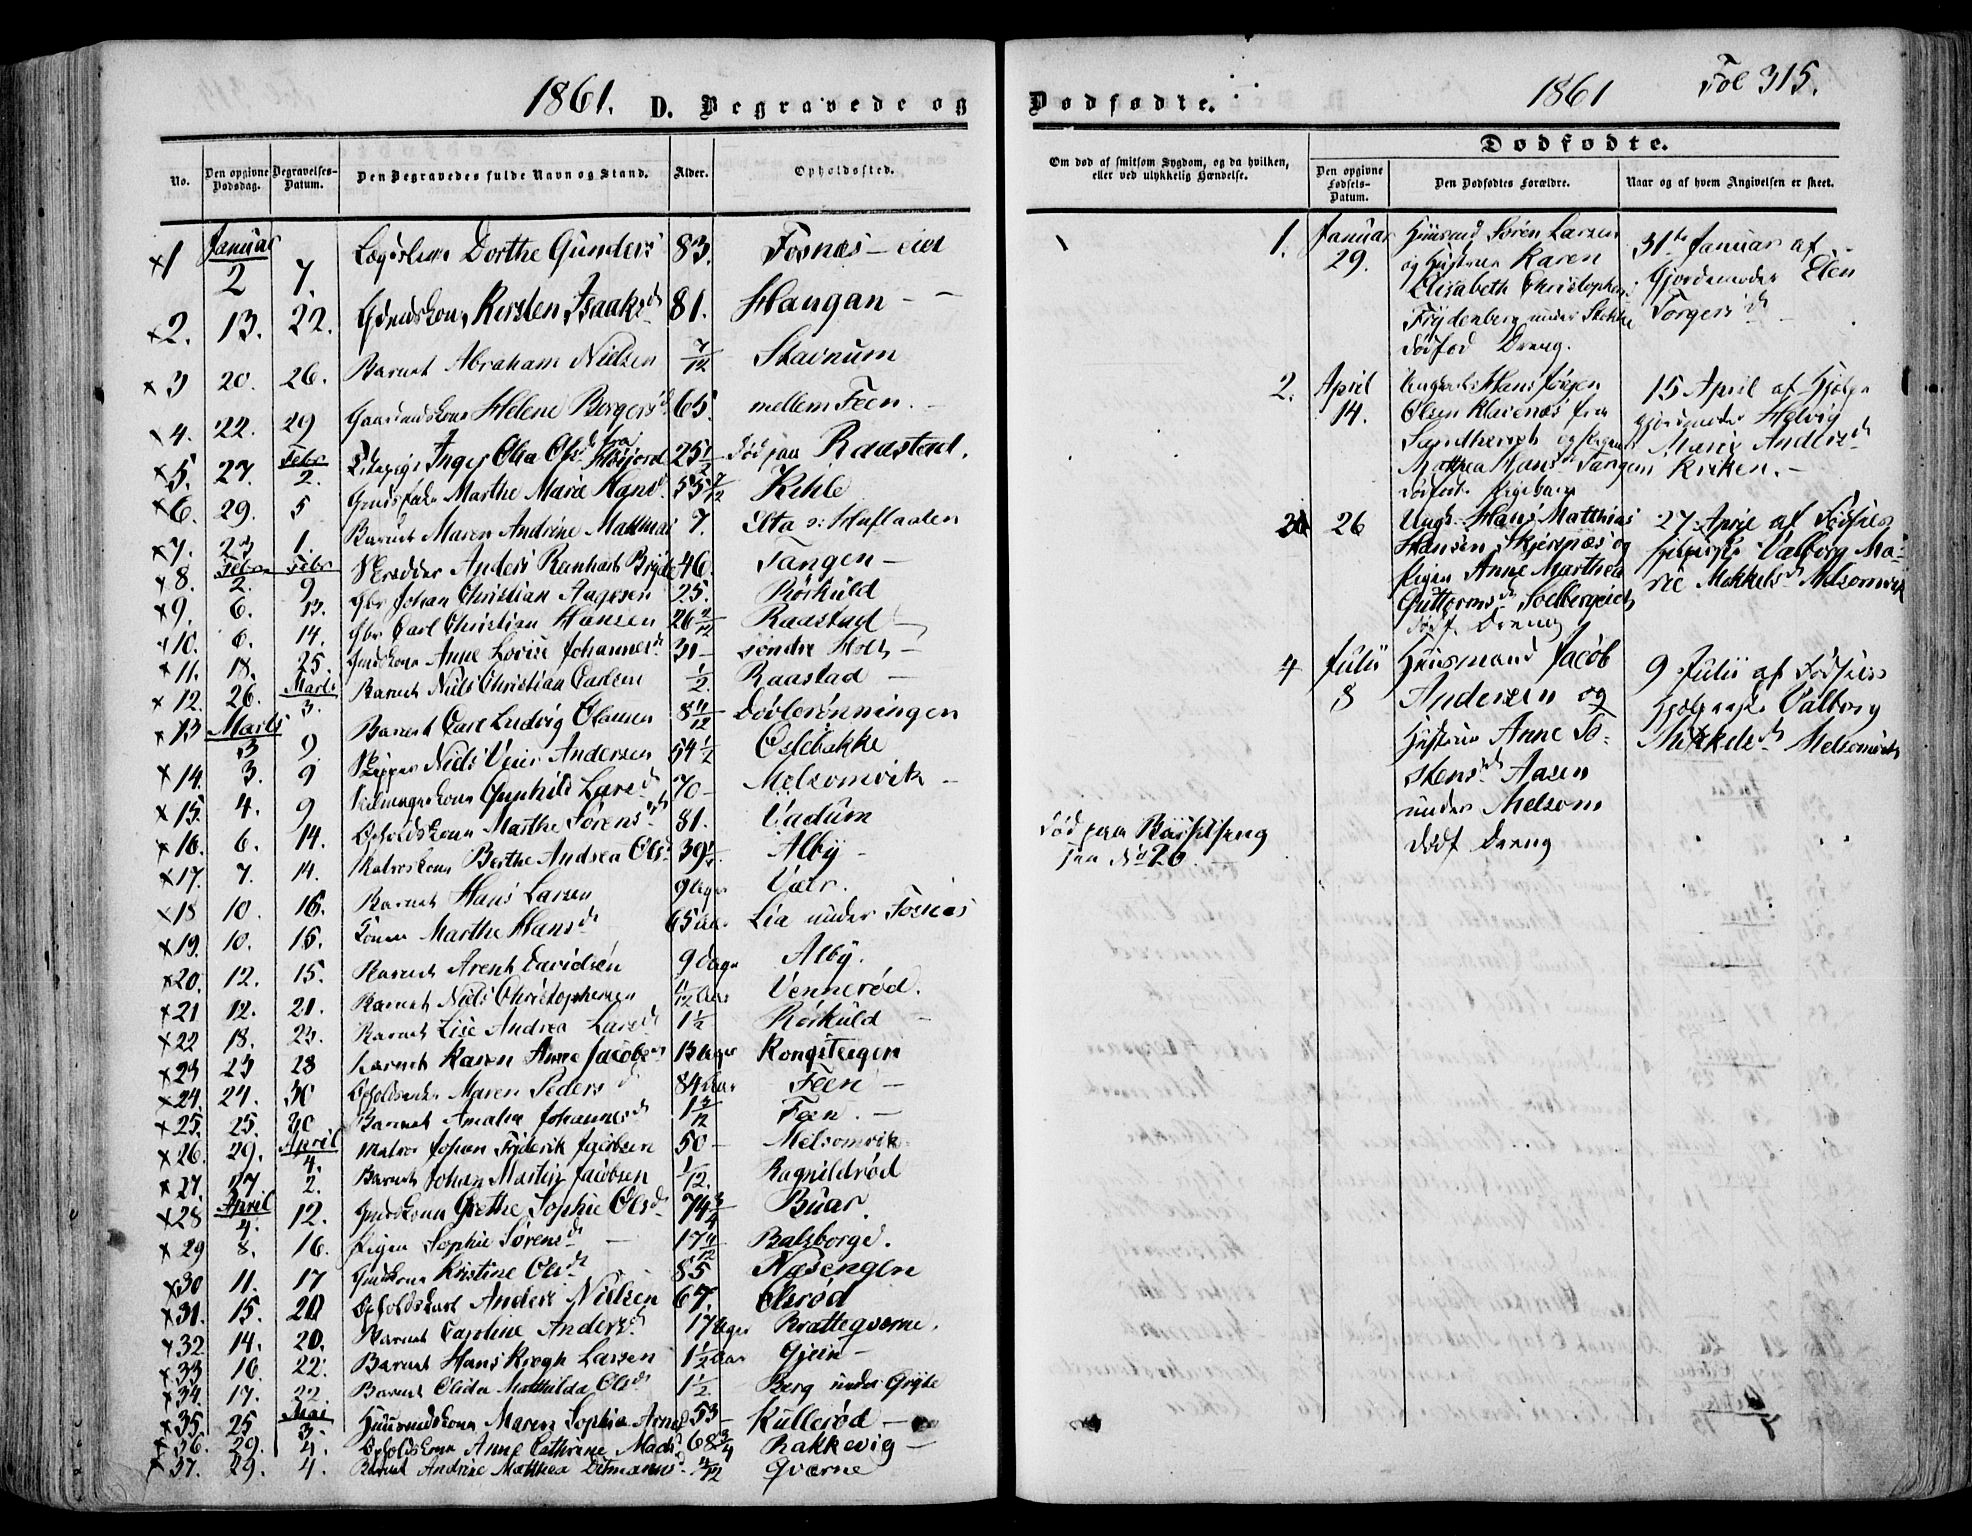 1861. D. Begravede og
No. Den opgivne Dødsdag. Begravelses-Datum. Den Begravedes fulde Navn og Stand. Alder. Opholdssted.
1 Januar 2 7. Dorthe Gunders 83. Fosnæs-eiet
2. 13. 22. Kirsten Isaksd 81. Haugan
3 20. 26. Barnet Abraham Nielsen 7/12 Stavnum
4. 22. 29 Helene Borgers 65. mellem Feen.
5. 27. Febr 2. Inger Olea Olsd fra 25 1/2 død paa Raastad.
6. 29. 5 Marthe Marie Hansd. 55 Kihle
7. 23 1. Barnet Maren Andrine 7.
8. Febr 2. Febr 9 Skrædder Anders Reinhart Bryde 46. Tangen
9. 6. 13. Johan Christian Aagesen 25. Rørkuld
10. 6. 14. Carl Christian Hansen 26 Raastad
11. 18. 25. Anne Lovise Johannesd. 31 søndre Holt
12. 26. Marts 3. Barnet Niels Christian Carlsen 1/2. Raastad
13 Marts 3 9. Barnet Carl Ludvig Olausen 8 Døvlerønningen
14. 3. 9 Skipper Niels Veier Andersen 54 1/2 Oslebakke
15. 4. 9 Gunhild Larsd 70 Melsomvik
16. 6. 14. Marthe Sørensd 81. Vadum
17. 7. 14. Berthe Andrea Olsd 39 Alby
18 10. 16. Barnet Hans Larsen 9 Dage Valr.
19. 10. 16. Marthe Hansd 65 Aar Lia under Fosnæs
20. 12. 15. Barnet Arent Davidsen 9 Dage Alby.
21 12. 21. Barnet Niels Christophersen Vennerød.
22 18. 23. Barnet Lise Andrea Larsd 1 1/2 Rørkuld
23 23 28 Barnet Karen Anne Jacobs Rongsteigen
24. 24. 30 Maren Pedersd 84 Aar Feen
25. 25. 30 Barnet Amalia Johannesd 1 Feen.
26. 29. April 4. Matros Johan Friderik Jacobsen 50 Melsomvik
27. 27 2. Barnet Johan Martin Jacobsen 1/12. Ragnildrød
28 April 4. 12. Grethe Sophie Olsd 74 3/4 Buar.
29 8. 16. Pigen Sophie Sørensd 17 Balsborge.
30 11. 17 Kristine Olsd 85 Næsengen
31. 15. 20 Anders Nielsen 67. Olsrød
32 14. 20. Barnet Caroline Andersd 17 Dage Brattegverne.
33 16. 22. Barnet Hans Krogh Larsen 1 1/2 Aar Gjein
34. 17. 22. Barnet Olida Mathilda Olsd 1 1/2 Berg under Gryte
35. 25 Mai 3. Maren Sophia 53 Kullerød
36. 29. 4. Anne Cathrine Madsd 68 3/4 Rakkevig
37. 29. 4. Barnet Andrine Mathea Ditmansd. Qværne
Dødfødte. 1861 Fol 315.
Om død af smitsom Sygdom, og da hvilken, eller ved ulykkelig Hændelse.
Dødfødte.
Den opgivne Fødsels-Datum. Den Dødfødtes Forældre. Naar og af hvem Angivelsen er skeet.
1. Januar 29. Søren Larsen
og Hustrue Karen
Elisabeth Christophers
Frydenberg under Stokke
dødfød Dreng.
31te Januar af
Gjordemoder Elen
Torgersd
2. April 14. Hans Jørgen
Olsen Klavenæs fra
Sandherred og Pigen
Mathea Hansd Tangen
dødfødt Pigebarn
15 April af
Helvig
Marie Andersd
Krøken.
26 Ungk. Hans Matthias
Hansen og
Pigen Anne Marthea
Guttormsd Solbergeiet
Dødf. Dreng
27 April af
Valborg Ma-
rie Mekkelsd Melsomvik
4 Julii 8 Huusmand Jacob
Andersen og
Hustrue Anne To-
stensd Aasen
under Melsom
dødf Dreng
9 Julii af
Valborg
Mikkelsd Melsomvik
død paa
20.